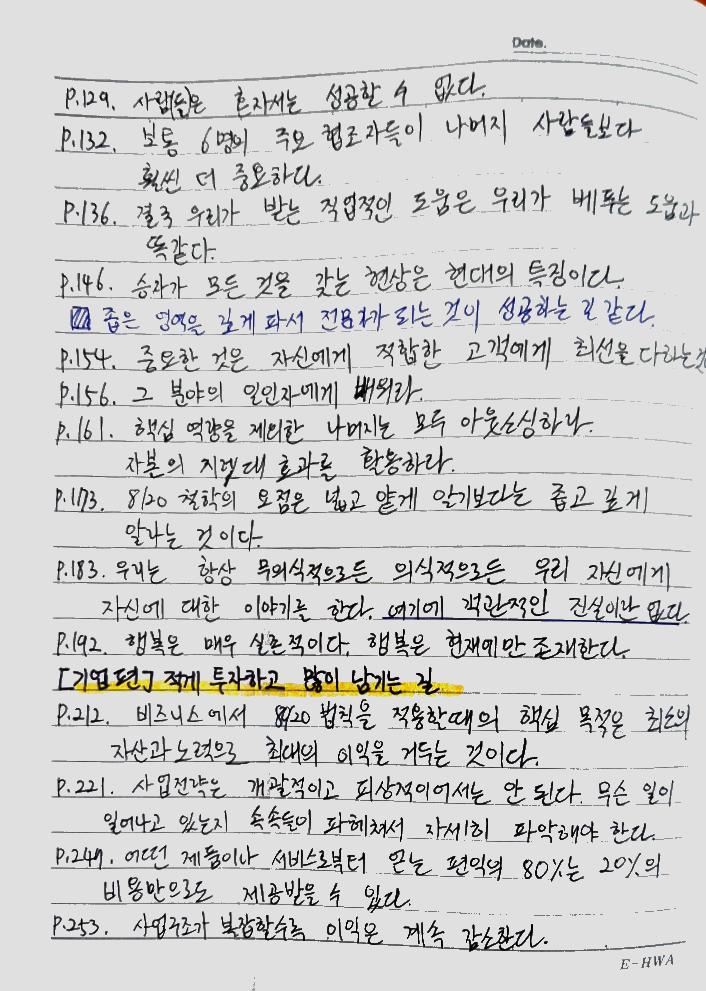 Date.
P.129. 사람(들)은 혼자서는 성공할 수 없다.
P.132. 보통 6명의 주요 협조자들이 나머지 사람들보다
훨씬 더 중요하다.
P.136. 결국 우리가 받는 직업적인 도움은 우리가 베푸는 도움과
똑같다.
P.146. 승자가 모든 것을 갖는 현상은 현대의 특징이다.
좁은 영역을 깊게 파서 전문가가 되는 것이 성공하는 길 같다.
P.154. 중요한 것은 자신에게 적합한 고객에게 최선을 다하는 것
P.156. 그 분야의 일인자에게 배워라.
P.161. 핵심 역량을 제외한 나머지는 모두 아웃소싱하라.
자본의 지렛대 효과를 활용하라.
P.173. 8/20 철학의 요점은 넓고 얕게 알기보다는 좁고 깊게
알라는 것이다.
P.183. 우리는 항상 무의식적으로든 의식적으로든 우리 자신에게
자신에 대한 이야기를 한다. 여기에 객관적인 진실이란 없다.
P.192. 행복은 매우 실존적이다. 행복은 현재에만 존재한다.
[기업편] 적게 투자하고 많이 남기는 길
P.212. 비즈니스에서 8/20 법칙을 적용할때의 핵심 목적은 최소의
자산과 노력으로 최대의 이익을 거두는 것이다.
P.221. 사업전략은 개괄적이고 피상적이어서는 안 된다. 무슨 일이
일어나고 있는지 속속들이 파헤쳐서 자세히 파악해야 한다.
P.249. 어떤 제품이나 서비스로부터 얻는 편익의 80%는 20%의
비용만으로도 제공받을 수 있다.
P.253. 사업구조가 복잡할수록 이익은 계속 감소한다.
E-HWA